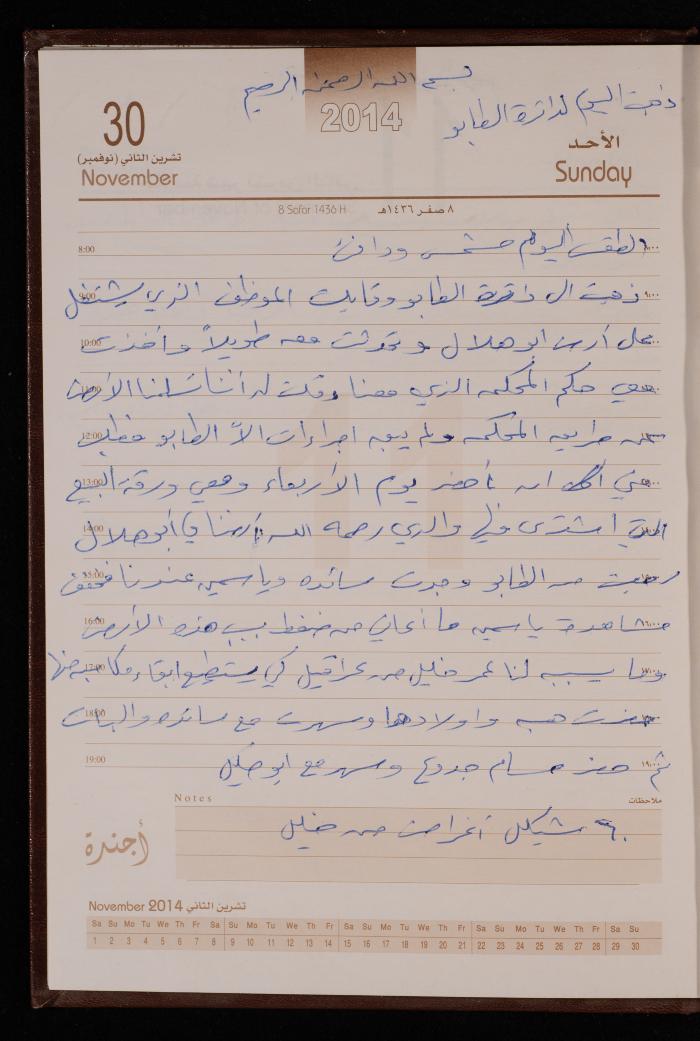 بسم الله الرحمن الرحيم
ذهبت اليوم لدائرة الطابو
2014
30
تشرين الثاني (نوفمبر)
November
الأحد
Sunday
8 Safar 1436 H
٨ صفر ١٤٣٦هـ
8:00 الطقس اليوم مشمس ودافئ
9:00 ذهبت الى دائرة الطابو وقابلت الموظف الذي يشتغل ٩:٠٠
10:00 على أرض ابو هلال وتحدثت معه طويلاً وأخذت
معي حكم المحكمه الذي معنا وقلت له أننا تسلمنا الأرض
12:00 عن طريق المحكمه ولم يبق اجراءات الاّ الطابو فطلب
13:00 مني ان أحضر يوم الأربعاء ومعي ورقة البيع
14:00 التي اشترى فيها والدي رحمه الله أرضنا في أبو هلال
15:00 رجعت من الطابو وجدت سائده وياسمين عندنا
16:00 مشاهدة ياسمين ما أعاني من ضغط بسبب هذه الأرض
17:00 وما يسببه لنا عمر خليل من عراقيل كي يستطيع ابقاء
18:00 حضرت هبه واولادها وسهرت مع سائده والبنات
19:00 ثم حضر حسام جدوع وسهر مع ابو
Notes
ملاحظات
٦٠ شيكل أغراض من خليل
أجندة
November 2014 تشرين الثاني
Sa Su Mo Tu We Th Fr Sa Su Mo Tu We Th Fr Sa Su Mo Tu We Th Fr Sa Su Mo Tu We Th Fr Sa Su
1 2 3 4 5 6 7 8 9 10 11 12 13 14 15 16 17 18 19 20 21 22 23 24 25 26 27 28 29 30